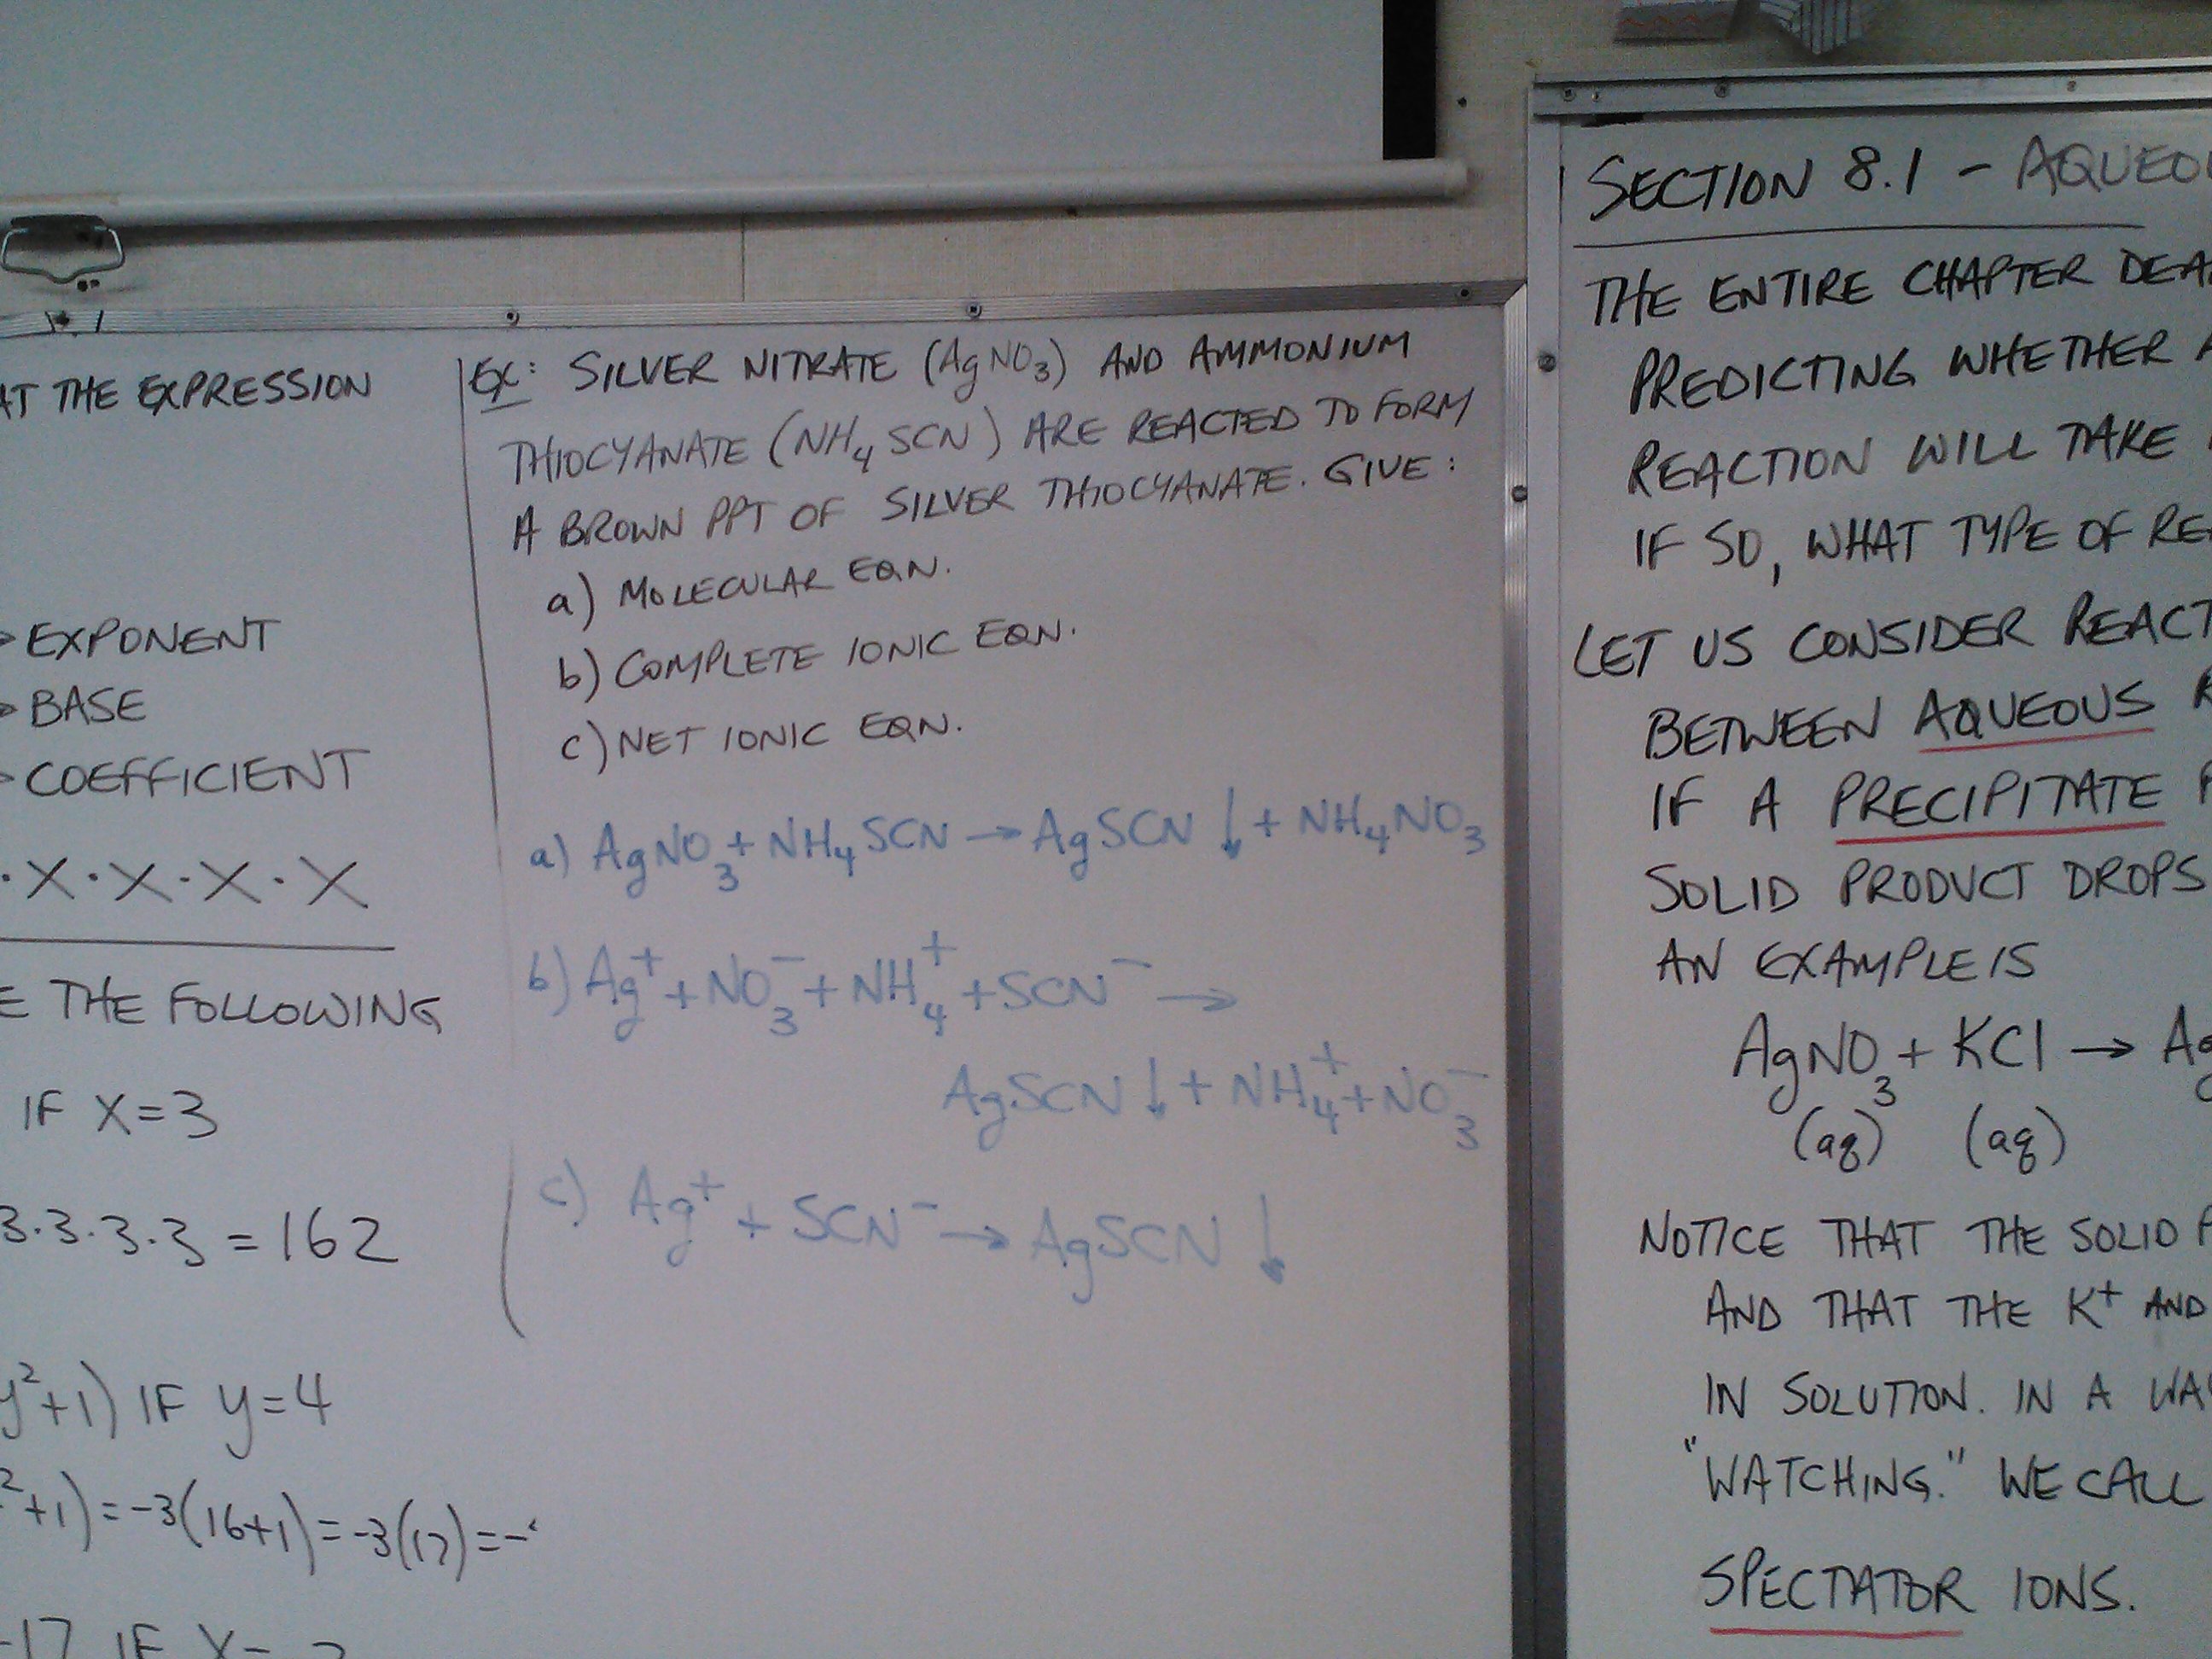 AT THE EXPRESSION
EXPONENT
BASE
COEFFICIENT
·X·X·X·X
THE FOLLOWING
IF X=3
3·3·3·3 = 162
y²+1) IF y=4
²+1) = -3(16+1) = -3(17) = -
-17 IF X=
EX: SILVER NITRATE (AgNO₃) AND AMMONIUM
THIOCYANATE (NH₄SCN) ARE REACTED TO FORM
A BROWN PPT OF SILVER THIOCYANATE. GIVE:
a) MOLECULAR EQN.
b) COMPLETE IONIC EQN.
c) NET IONIC EQN.
a) AgNO₃ + NH₄SCN → AgSCN ↓ + NH₄NO₃
b) Ag⁺ + NO₃⁻ + NH₄⁺ + SCN⁻ →
AgSCN ↓ + NH₄⁺ + NO₃⁻
c) Ag⁺ + SCN⁻ → AgSCN ↓
SECTION 8.1 - AQUEOU
THE ENTIRE CHAPTER DEA
PREDICTING WHETHER A
REACTION WILL TAKE
IF SO, WHAT TYPE OF RE
LET US CONSIDER REACT
BETWEEN AQUEOUS R
IF A PRECIPITATE
SOLID PRODUCT DROPS
AN EXAMPLE IS
AgNO₃ + KCl → Ag
(aq) (aq)
NOTICE THAT THE SOLID
AND THAT THE K⁺ AND
IN SOLUTION. IN A WAY
"WATCHING." WE CALL
SPECTATOR IONS.